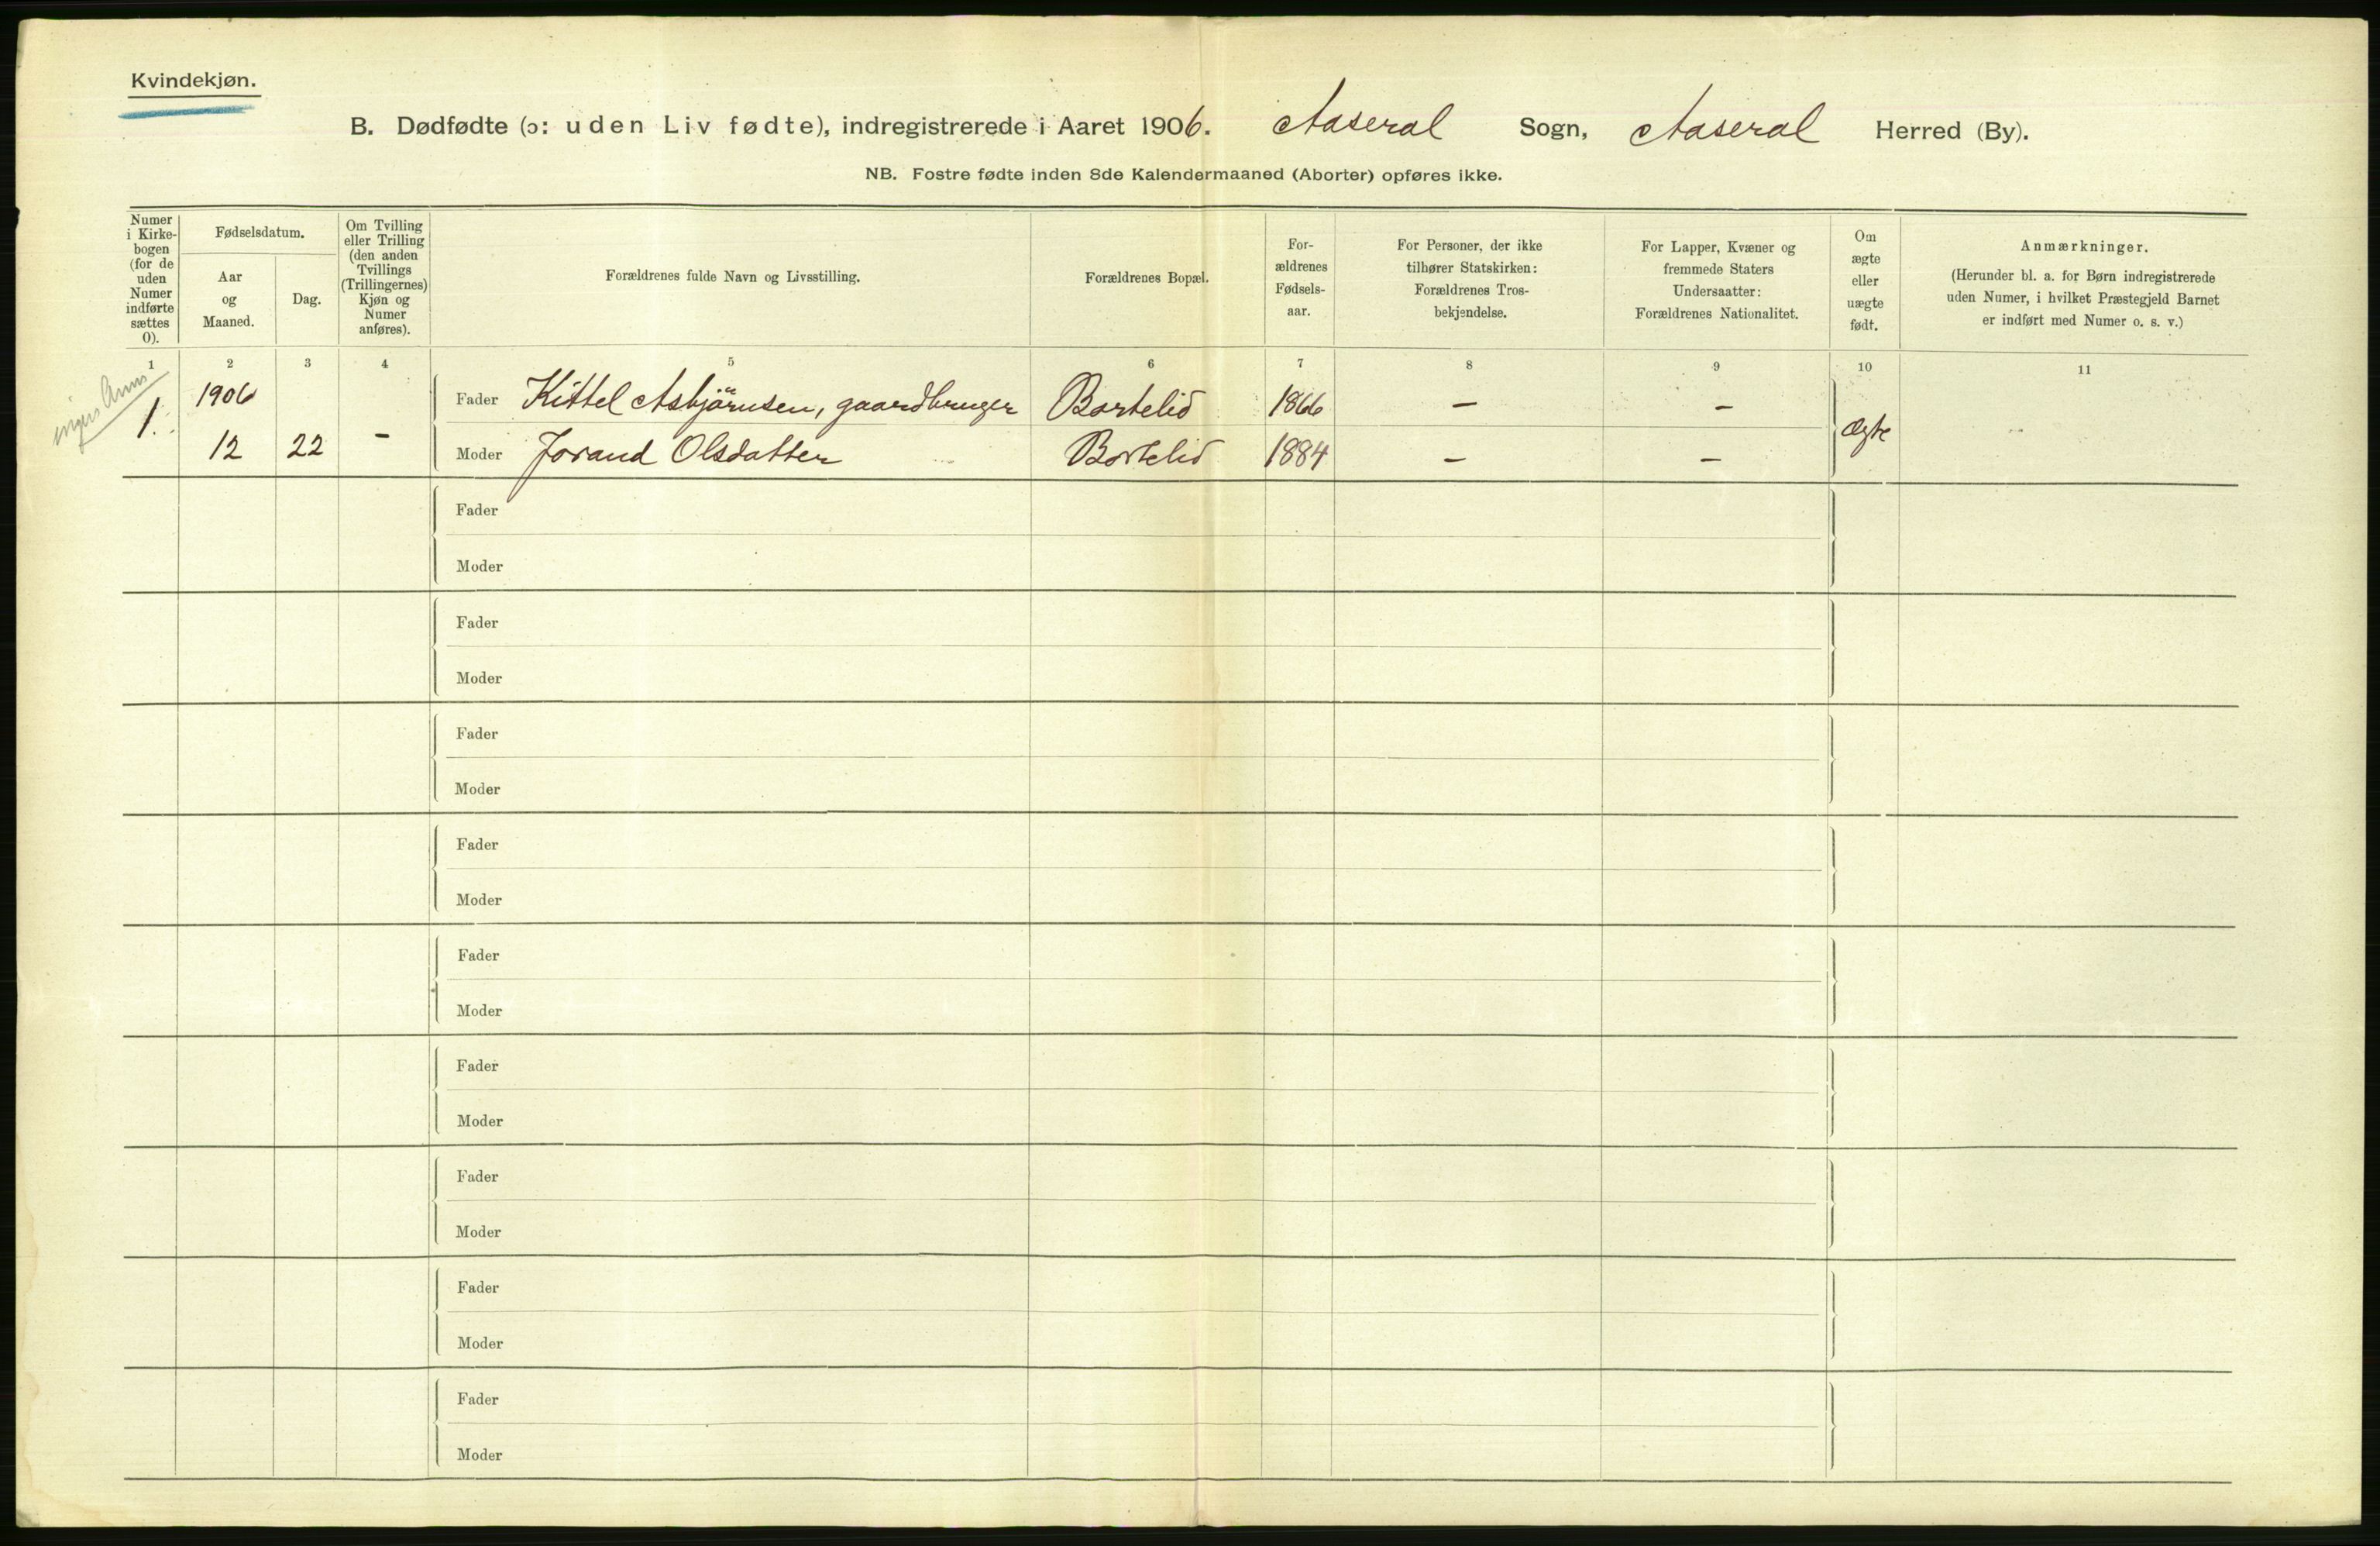 Kvindekjøn.
B. Dødfødte (ɔ: uden Liv fødte), indregistrerede i Aaret 1906. Aaseral Sogn, Aaseral Herred (By).
NB. Fostre fødte inden 8de Kalendermaaned (Aborter) opføres ikke.
Numer
i Kirke-
bogen
(for de
uden
Numer
indførte
sættes
0).
Fødselsdatum.
Aar
og
Maaned.
Dag.
Om Tvilling
eller Trilling
(den anden
Tvillings
(Trillingernes)
Kjøn og
Numer
anføres).
Forældrenes fulde Navn og Livsstilling.
Forældrenes Bopæl.
For-
ældrenes
Fødsels-
aar.
For Personer, der ikke
tilhører Statskirken:
Forældrenes Tros-
bekjendelse.
For Lapper, Kvæner og
fremmede Staters
Undersaatter:
Forældrenes Nationalitet.
Om
ægte
eller
uægte
født.
Anmærkninger.
(Herunder bl. a. for Børn indregistrerede
uden Numer, i hvilket Præstegjeld Barnet
er indført med Numer o. s. v.)
1 2 3 4 5 6 7 8 9 10 11
1906 Fader Kittel Asbjörnsen, gaardbruger Bortelid 1866 – –
1. – ægte
12 22 Moder Jorand Olsdatter Bortelid 1884 – –
Fader
Moder
Fader
Moder
Fader
Moder
Fader
Moder
Fader
Moder
Fader
Moder
Fader
Moder
Fader
Moder
Fader
Moder